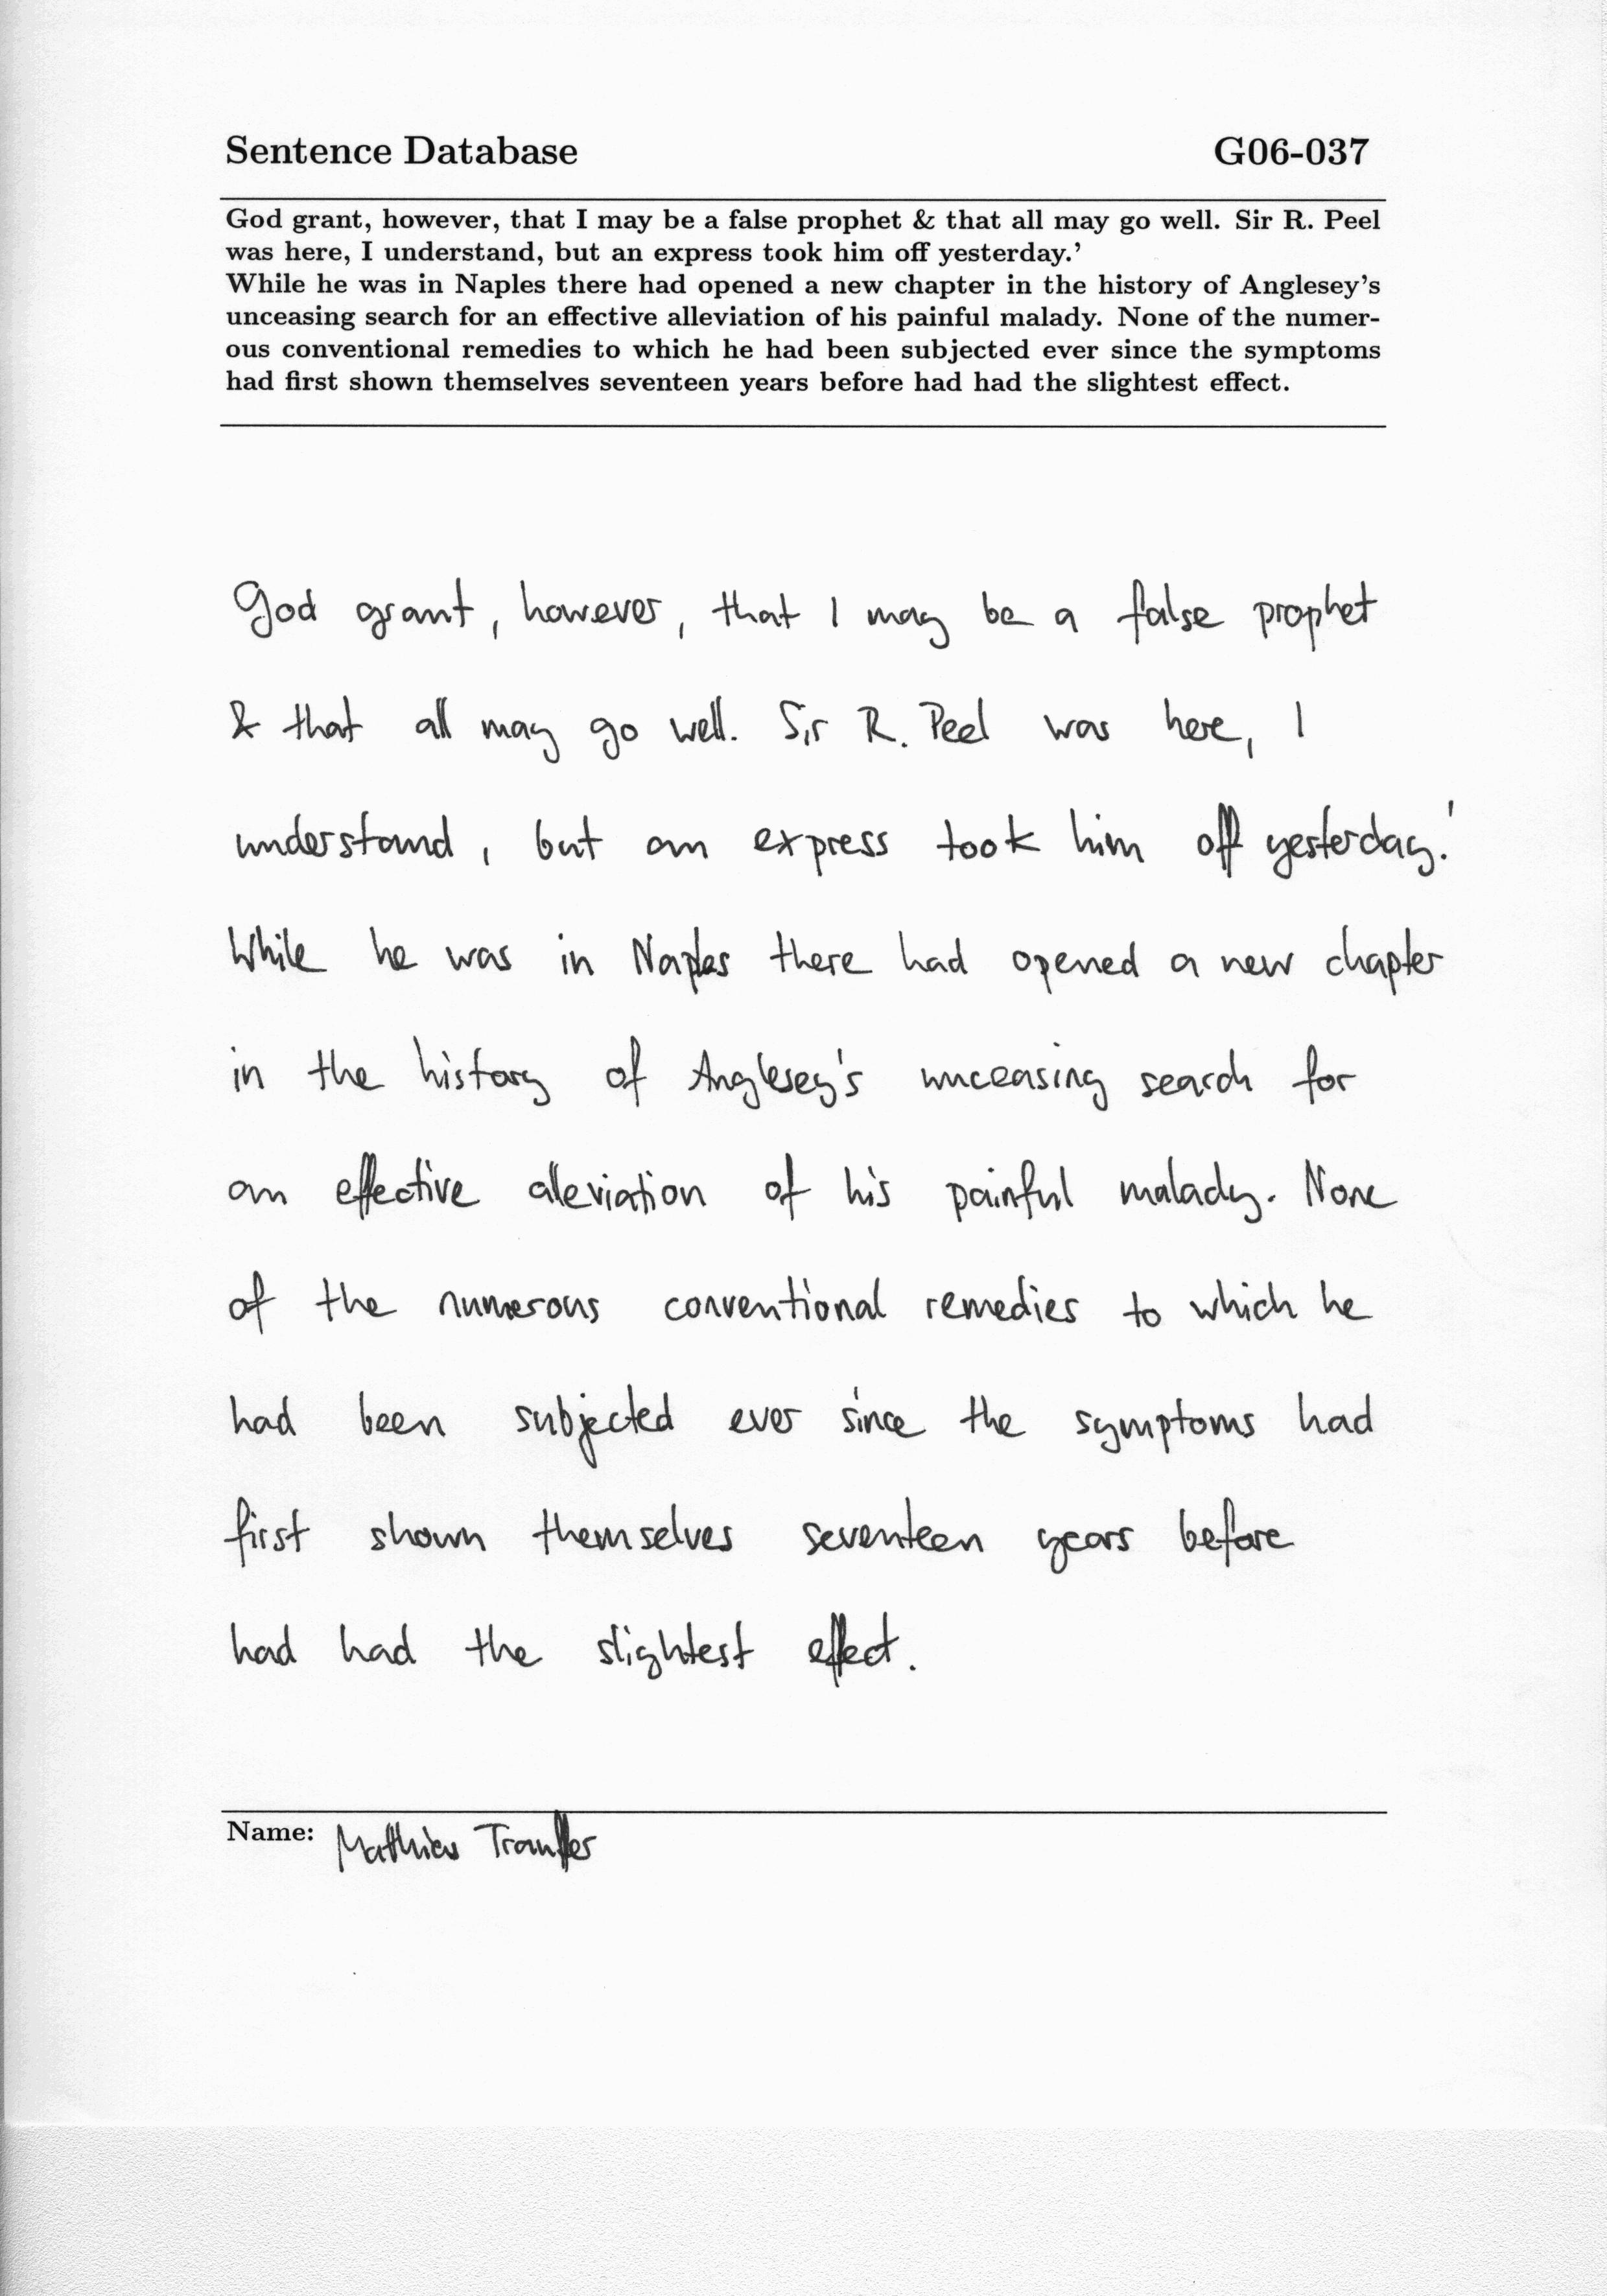 Sentence Database G06-037
God grant, however, that I may be a false prophet & that all may go well. Sir R. Peel
was here, I understand, but an express took him off yesterday.'
While he was in Naples there had opened a new chapter in the history of Anglesey's
unceasing search for an effective alleviation of his painful malady. None of the numer-
ous conventional remedies to which he had been subjected ever since the symptoms
had first shown themselves seventeen years before had had the slightest effect.
God grant, however, that I may be a false prophet
& that all may go well. Sir R. Peel was here, I
understand, but an express took him off yesterday.'
While he was in Naples there had opened a new chapter
in the history of Anglesey's unceasing search for
an effective alleviation of his painful malady. None
of the numerous conventional remedies to which he
had been subjected ever since the symptoms had
first shown themselves seventeen years before
had had the slightest effect.
Name: